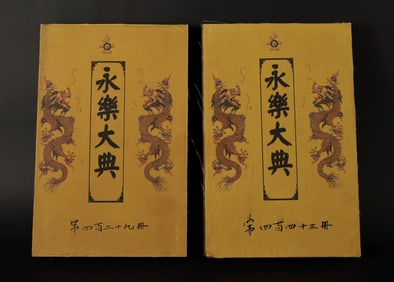 永樂大典
第四百二十九册
永樂大典
第四百四十三册